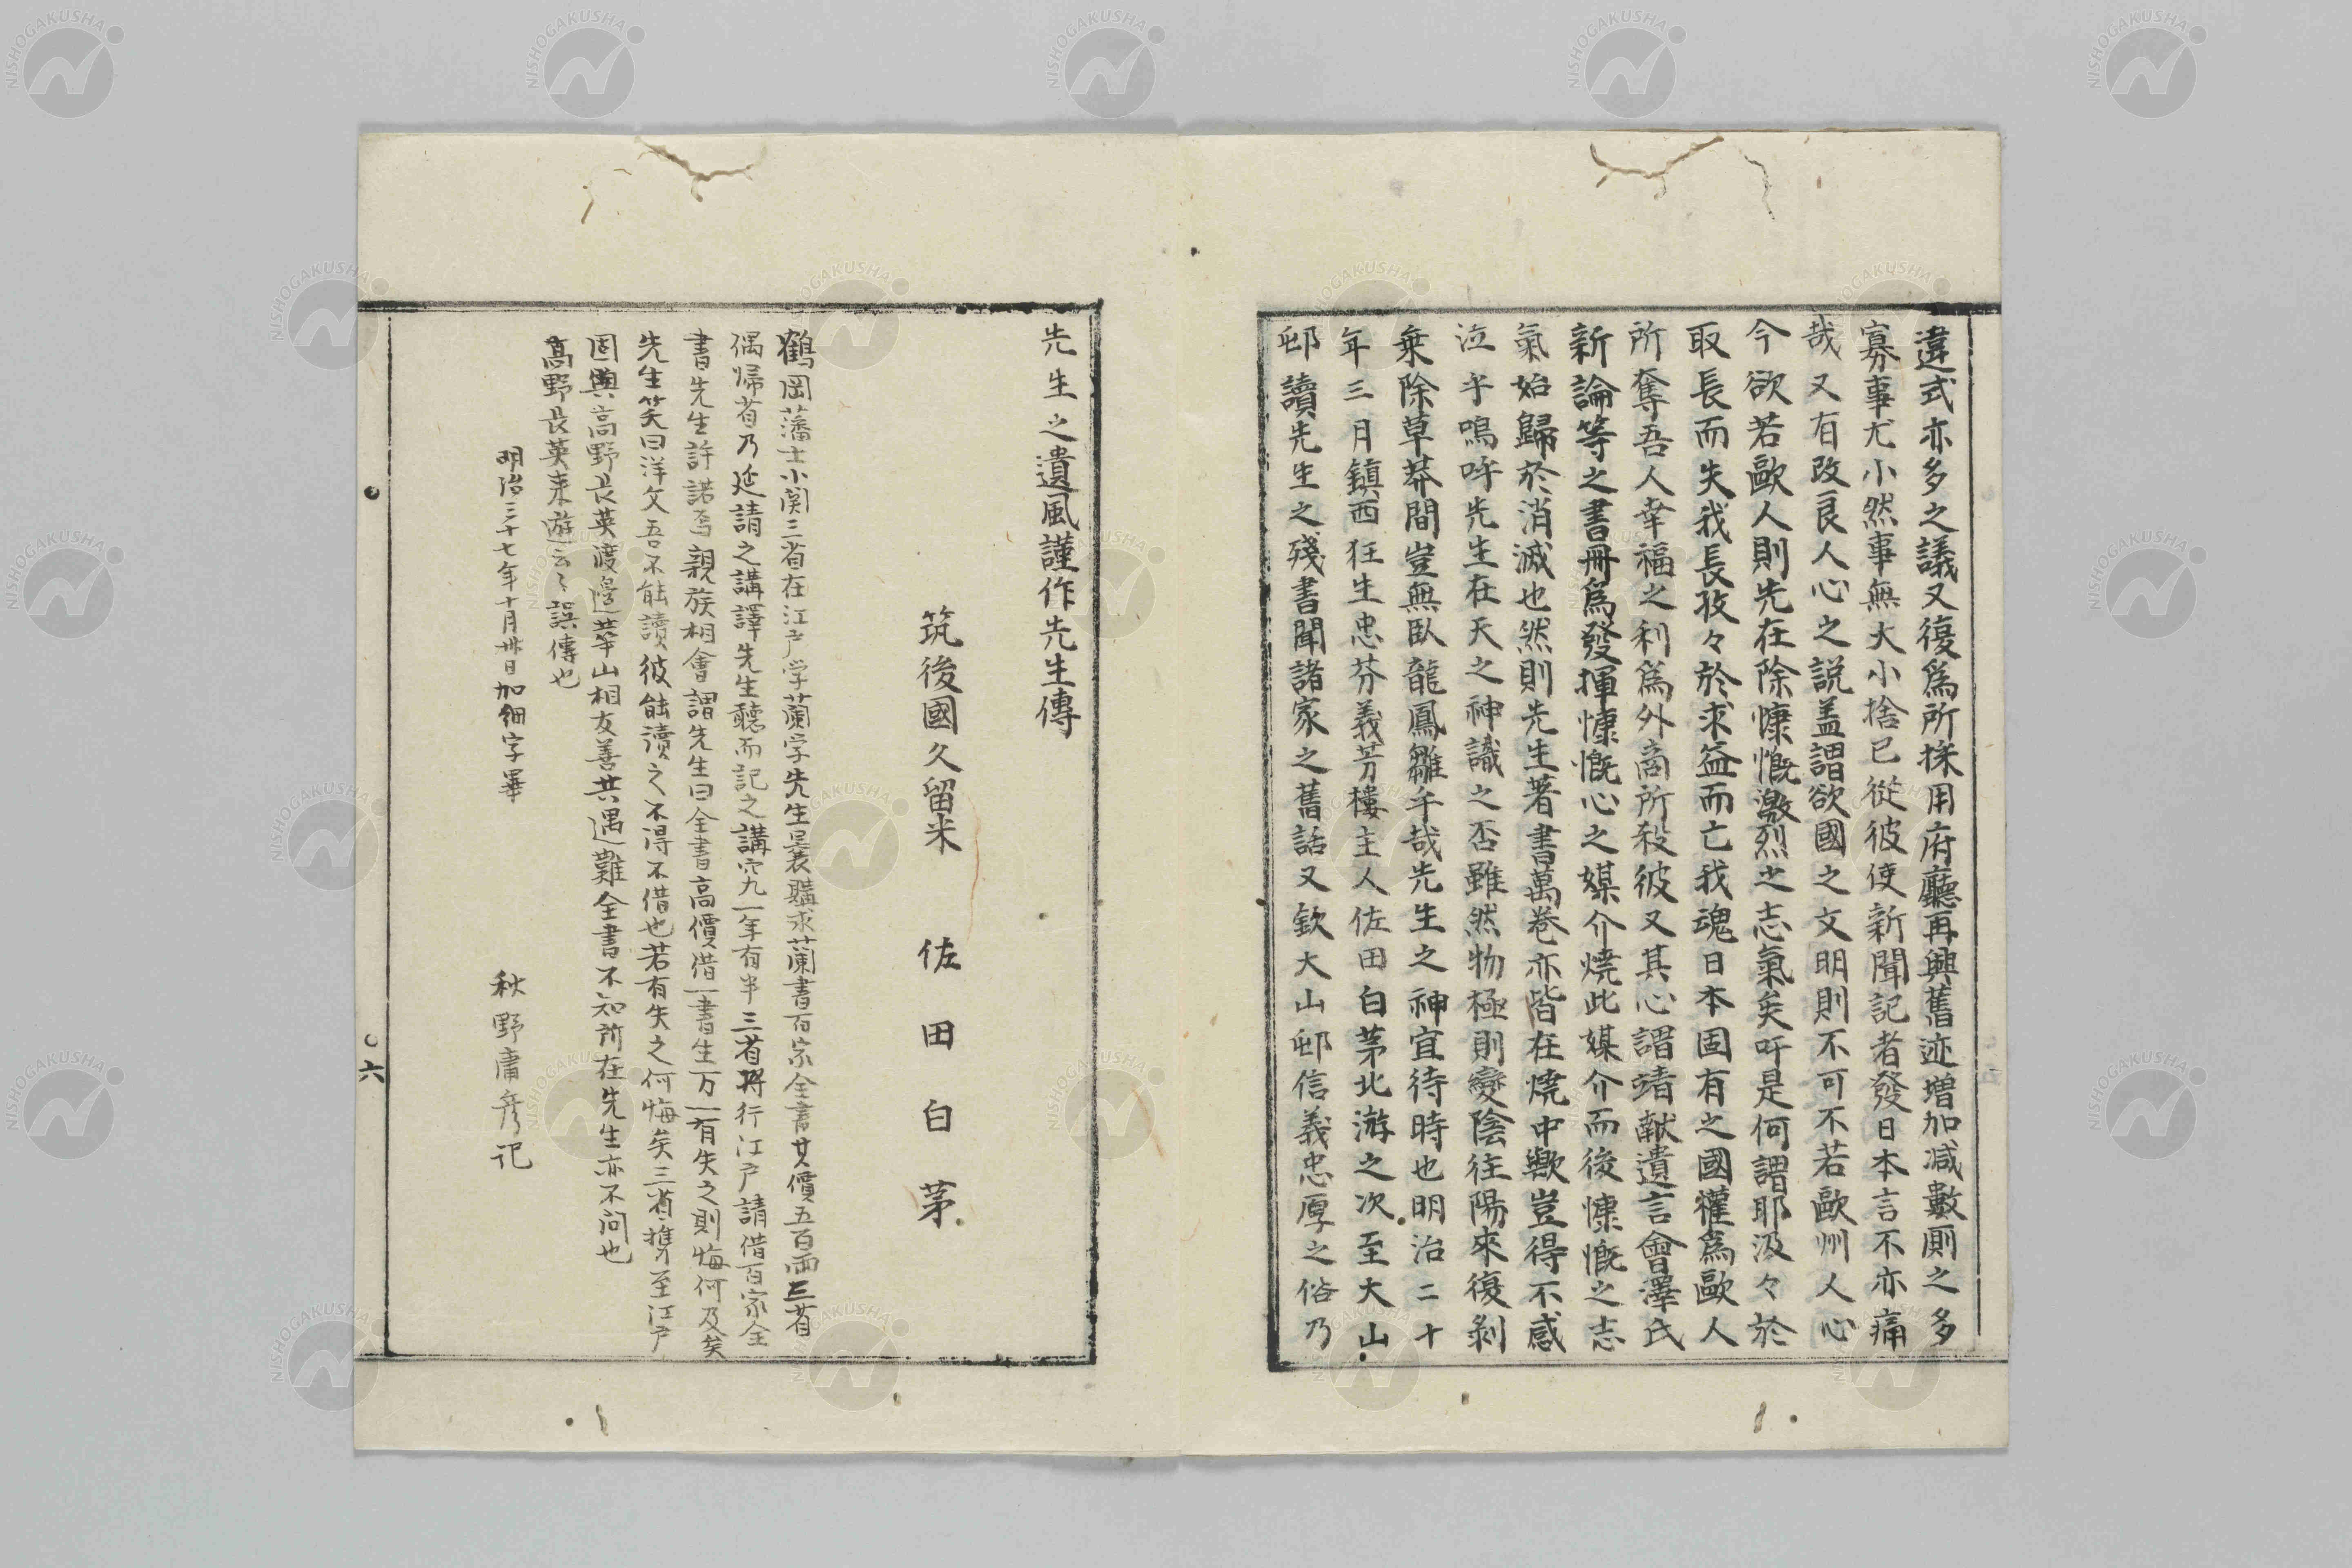 違式亦多之議又復爲所採用府廳再興舊迹増加減數厠之多
寡事尤小然事無大小捨已從彼使新聞記者發日本言不亦痛
哉又有改良人心之説盖謂欲國之文明則不可不若歐州人心
今欲若歐人則先在除慷慨激烈之志氣矣吁是何謂耶汲々於
取長而失我長孜々於求益而亡我魂日本固有之國權爲歐人
所奪吾人幸福之利爲外商所殺彼又其心謂靖献遺言會澤氏
新論等之書冊爲發揮慷慨心之媒介燒此媒介而後慷慨之志
氣始歸於消滅也然則先生著書萬卷亦皆在燒中歟豈得不感
泣乎嗚呼先生在天之神識之否雖然物極則變陰往陽來復剝
乗除草莽間豈無臥龍鳳雛乎哉先生之神宜待時也明治二十
年三月鎮西狂生忠芬義芳樓主人佐田白茅北游之次至大山
邨讀先生之殘書聞諸家之舊話又欽大山邨信義忠厚之俗乃
先生之遺風謹作先生傳
筑後國久留米 佐田白茅
鶴岡藩士小関三省在江戸学蘭字先生曩購求蘭書百家全書其價五百両三省
偶帰省乃延請之講譯先生聽而記之講究一年有半三省将行江戸請借百家全
書先生許諾否親族相會謂先生曰全書高價借一書生万一有失之則悔何及矣
先生笑曰洋文吾不能讀彼能讀之不得不借也若有失之何悔矣三省携至江戸
固與高野長英渡邉華山相友善共遇難全書不知所在先生亦不问也
高野長英来遊云々誤傳也
明治三十七年十月卅日加細字畢
秋野庸彦记
六
NISHOGAKUSHA